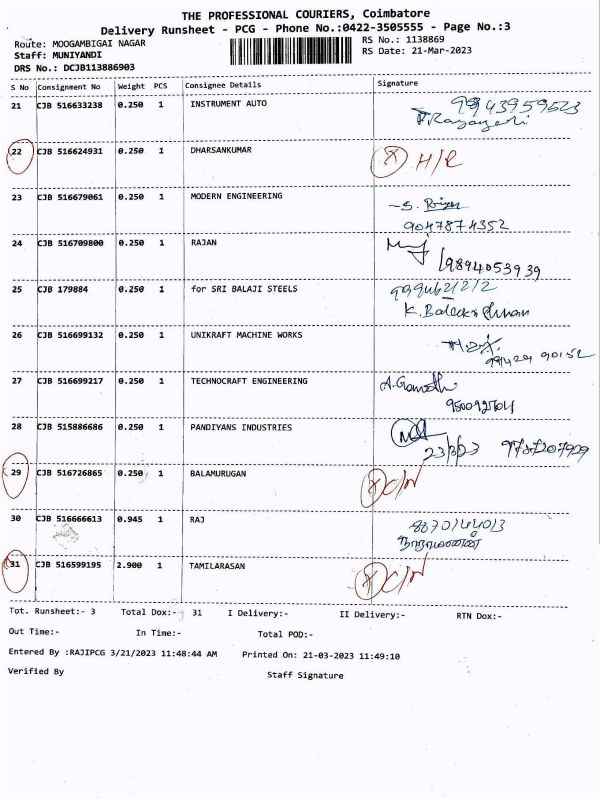 THE PROFESSIONAL COURIERS, Coimbatore
Delivery Runsheet - PCG - Phone No.:0422-3505555 - Page No.:3
Route: MOOGAMBIGAI NAGAR
RS No.: 1138869
Staff: MUNIYANDI
RS Date: 21-Mar-2023
DRS No.: DCJB113886903
S No Consignment No Weight PCS Consignee Details Signature
21 CJB 516633238 0.250 1 INSTRUMENT AUTO 9943959523
22 CJB 516624931 0.250 1 DHARSANKUMAR X H/R
23 CJB 516679061 0.250 1 MODERN ENGINEERING
9047874352
24 CJB 516709800 0.250 1 RAJAN
9894053939
25 CJB 179884 0.250 1 for SRI BALAJI STEELS
K. Balakrishnan
26 CJB 516699132 0.250 1 UNIKRAFT MACHINE WORKS
27 CJB 516699217 0.250 1 TECHNOCRAFT ENGINEERING
28 CJB 515886686 0.250 1 PANDIYANS INDUSTRIES
29 CJB 516726865 0.250 1 BALAMURUGAN
30 CJB 516666613 0.945 1 RAJ
31 CJB 516599195 2.900 1 TAMILARASAN
Tot. Runsheet:- 3 Total Dox:- 31 I Delivery:- II Delivery:- RTN Dox:-
Out Time:- In Time:- Total POD:-
Entered By :RAJIPCG 3/21/2023 11:48:44 AM Printed On: 21-03-2023 11:49:10
Verified By Staff Signature